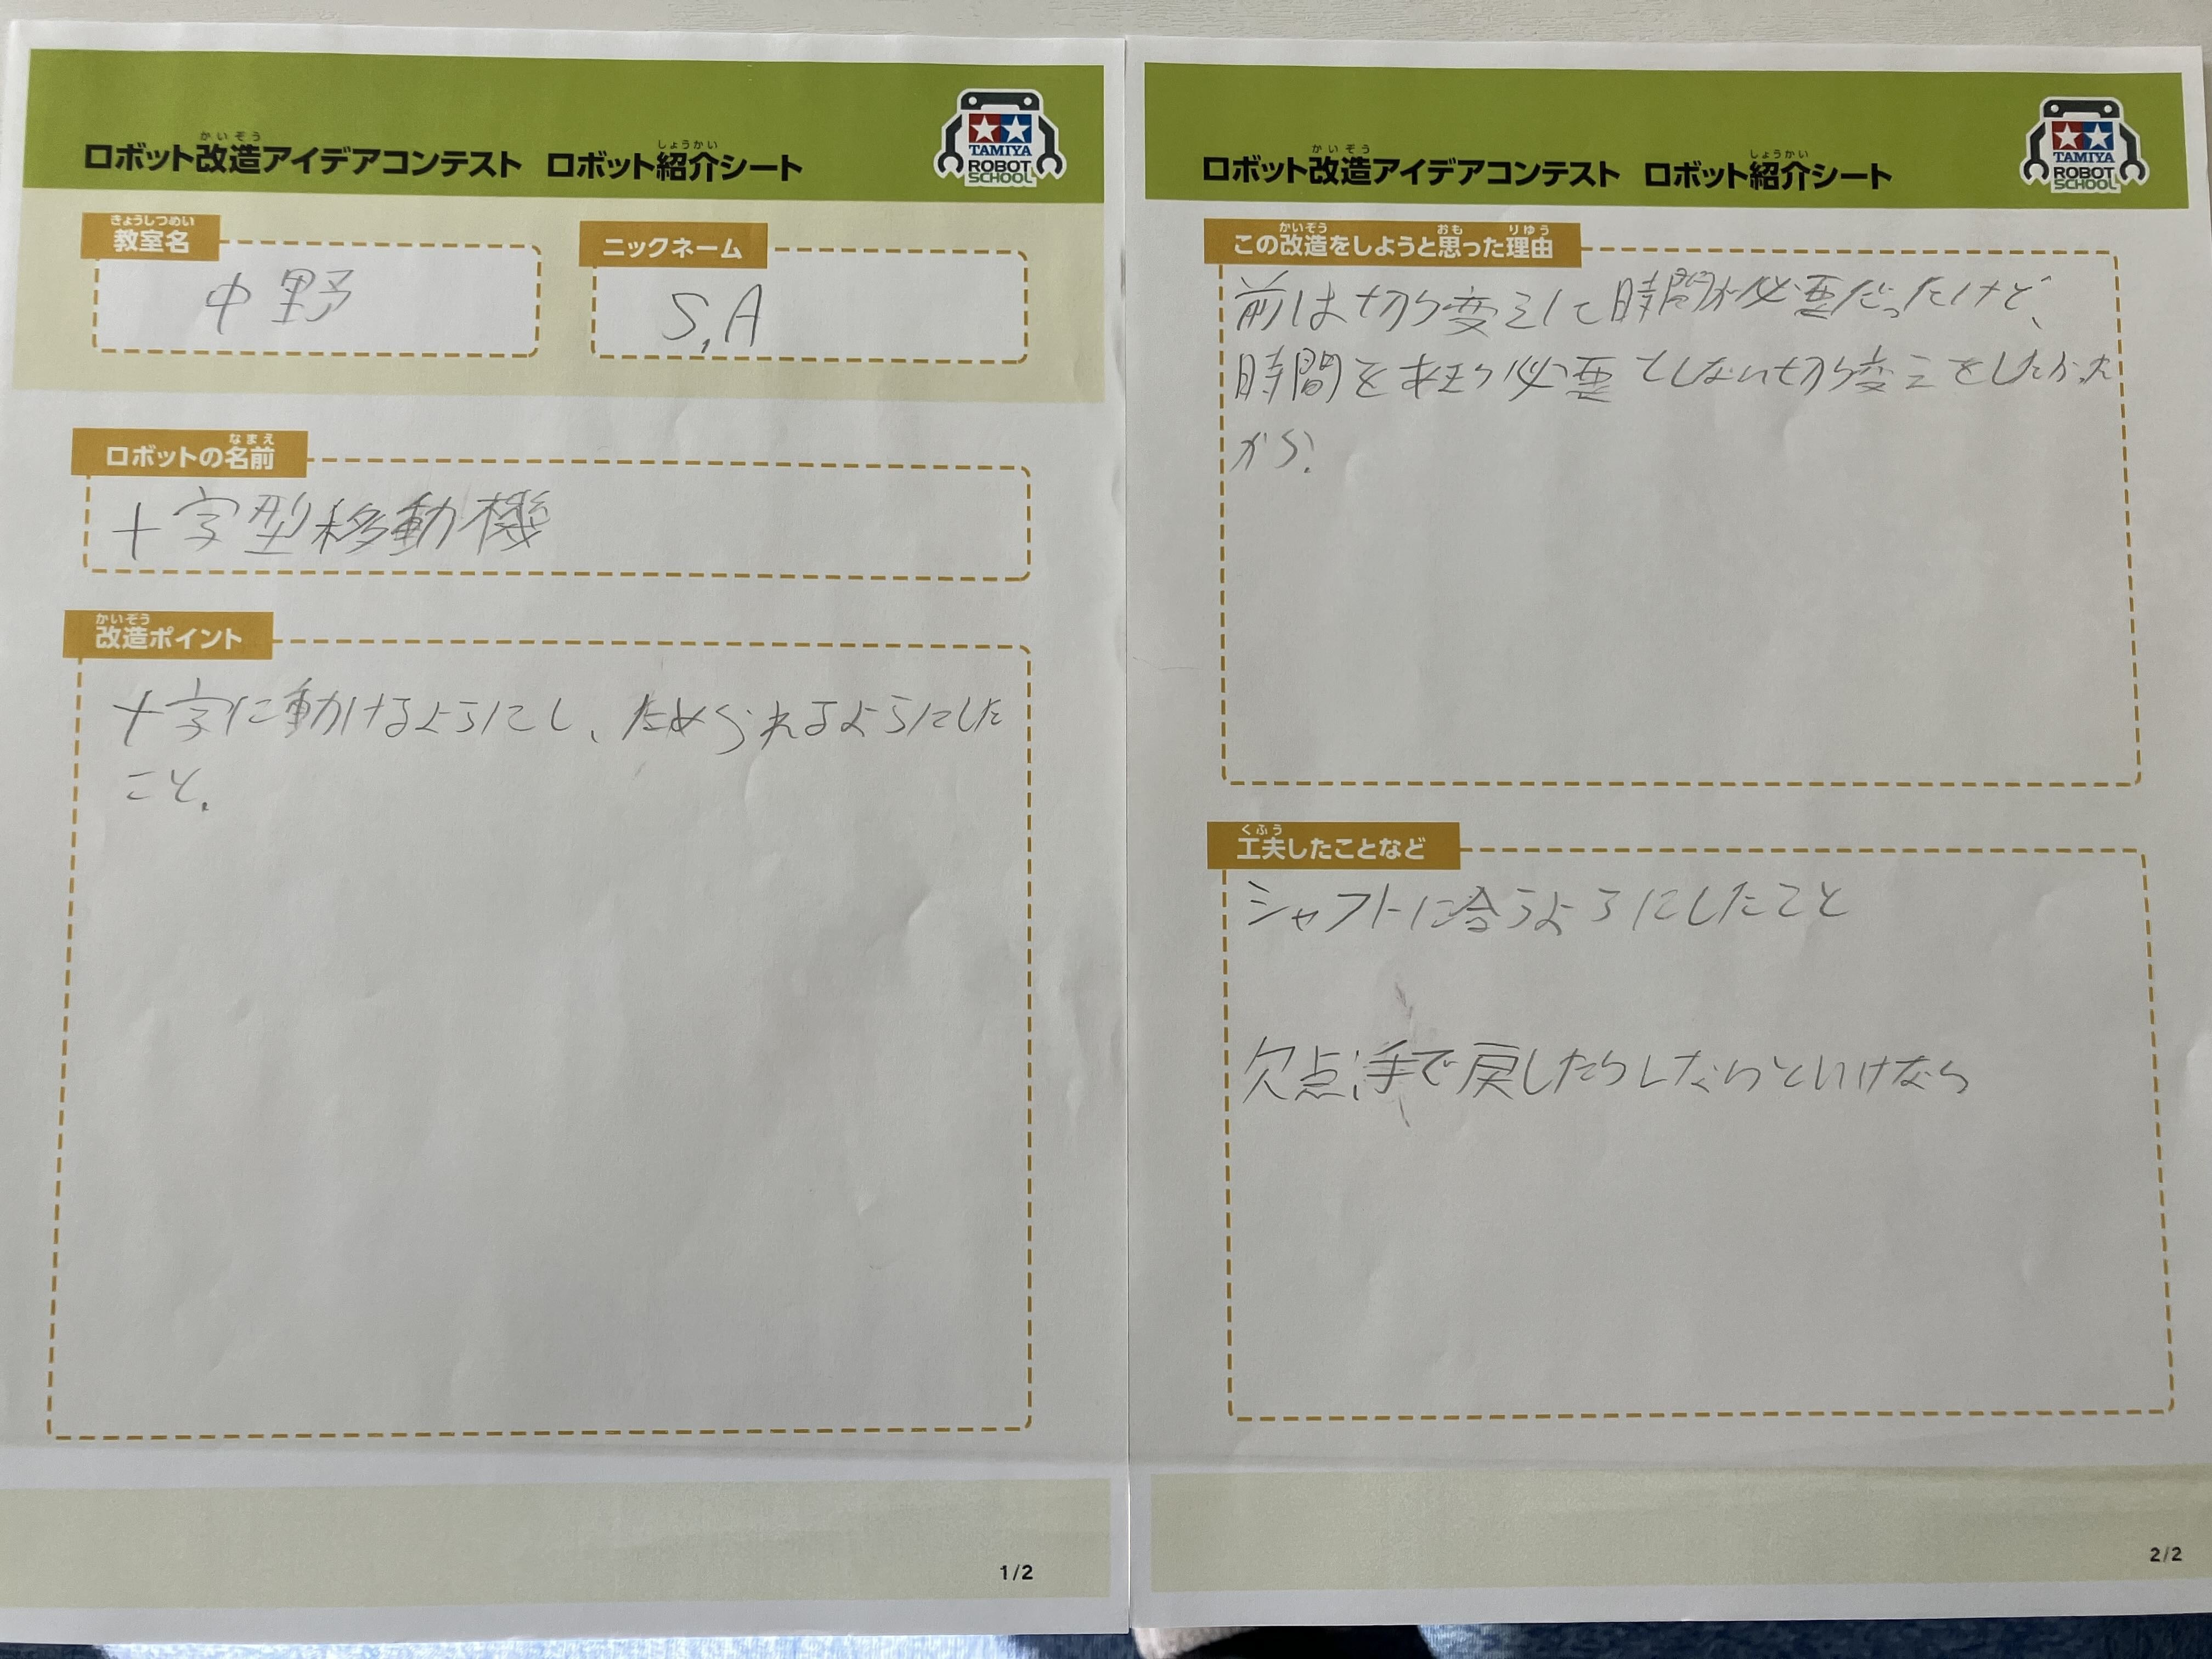 かいぞう しょうかい
ロボット改造アイデアコンテスト ロボット紹介シート
TAMIYA
ROBOT
SCHOOL
きょうしつめい
教室名
中野
ニックネーム
S,A
なまえ
ロボットの名前
十字型移動機
かいぞう
改造ポイント
十字に動けるようにし、ためられるようにした
こと。
1/2
かいぞう しょうかい
ロボット改造アイデアコンテスト ロボット紹介シート
TAMIYA
ROBOT
SCHOOL
かいぞう おも りゆう
この改造をしようと思った理由
前は切り変えして時間が必要だったけど、
時間を必要としない切り変えをしたかった
から。
くふう
工夫したことなど
シャフトに合うようにしたこと
欠点:手で戻したらしないといけない
2/2